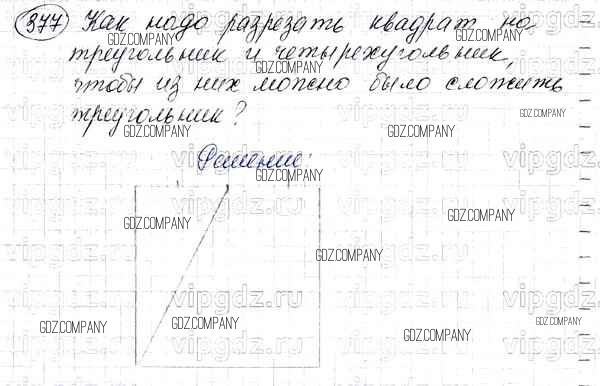 377 Как надо разрезать квадрат на
треугольник и четырехугольник,
чтобы из них можно было сложить
треугольник?
Решение:
GDZ.COMPANY
GDZ.COMPANY
GDZ.COMPANY
GDZ.COMPANY
GDZ.COMPANY
GDZ.COMPANY
vipgdz.ru
vipgdz.ru
GDZ.COMPANY
GDZ.COMPANY
GDZ.COMPANY
vipgdz.ru
vipgdz.ru
GDZ.COMPANY
vipgdz.ru
vipgdz.ru
GDZ.COMPANY
GDZ.COMPANY
GDZ.COMPANY
GDZ.COMPANY
vipgdz.ru
vipgdz.ru